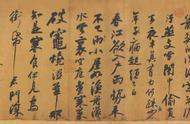 汙燕支雪闇中偷負
去夜半真有力何殊
年子病起頭已白
春江欲入戶雨勢來
不已雨小屋如漁舟濛
濛水雲裏空庖煮寒菜
破竈燒濕葦那
知是寒食但見烏
銜帋君門深